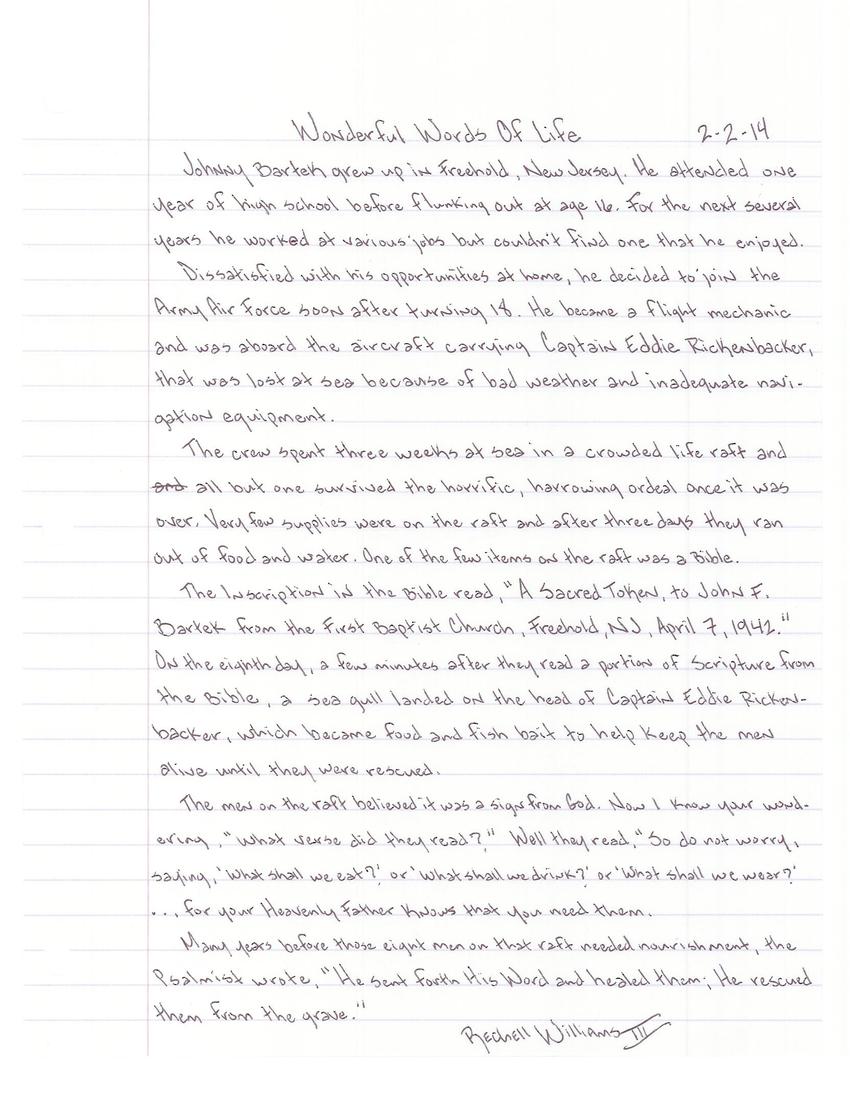 Wonderful Words Of Life 2-2-14
Johnny Bartek grew up in Freehold, New Jersey. He attended one
year of high school before flunking out at age 16. For the next several
years he worked at various jobs but couldn't find one that he enjoyed.
Dissatisfied with his opportunities at home, he decided to join the
Army Air Force soon after turning 18. He became a flight mechanic
and was aboard the aircraft carrying Captain Eddie Rickenbacker,
that was lost at sea because of bad weather and inadequate navi-
gation equipment.
The crew spent three weeks at sea in a crowded life raft and
and all but one survived the horrific, harrowing ordeal once it was
over. Very few supplies were on the raft and after three days they ran
out of food and water. One of the few items on the raft was a Bible.
The Inscription in the Bible read, "A Sacred Token, to John F.
Bartek from the First Baptist Church, Freehold, NJ, April 7, 1942."
On the eighth day, a few minutes after they read a portion of Scripture from
the Bible, a sea gull landed on the head of Captain Eddie Ricken-
backer, which became food and fish bait to help keep the men
alive until they were rescued.
The men on the raft believed it was a sign from God. Now I know your wond-
ering, "What verse did they read?" Well they read, "So do not worry,
saying, 'What shall we eat?' or 'What shall we drink?' or 'What shall we wear?'
... for your Heavenly Father knows that you need them.
Many years before those eight men on that raft needed nourishment, the
Psalmist wrote, "He sent forth His Word and healed them; He rescued
them from the grave."
Rechell Williams III